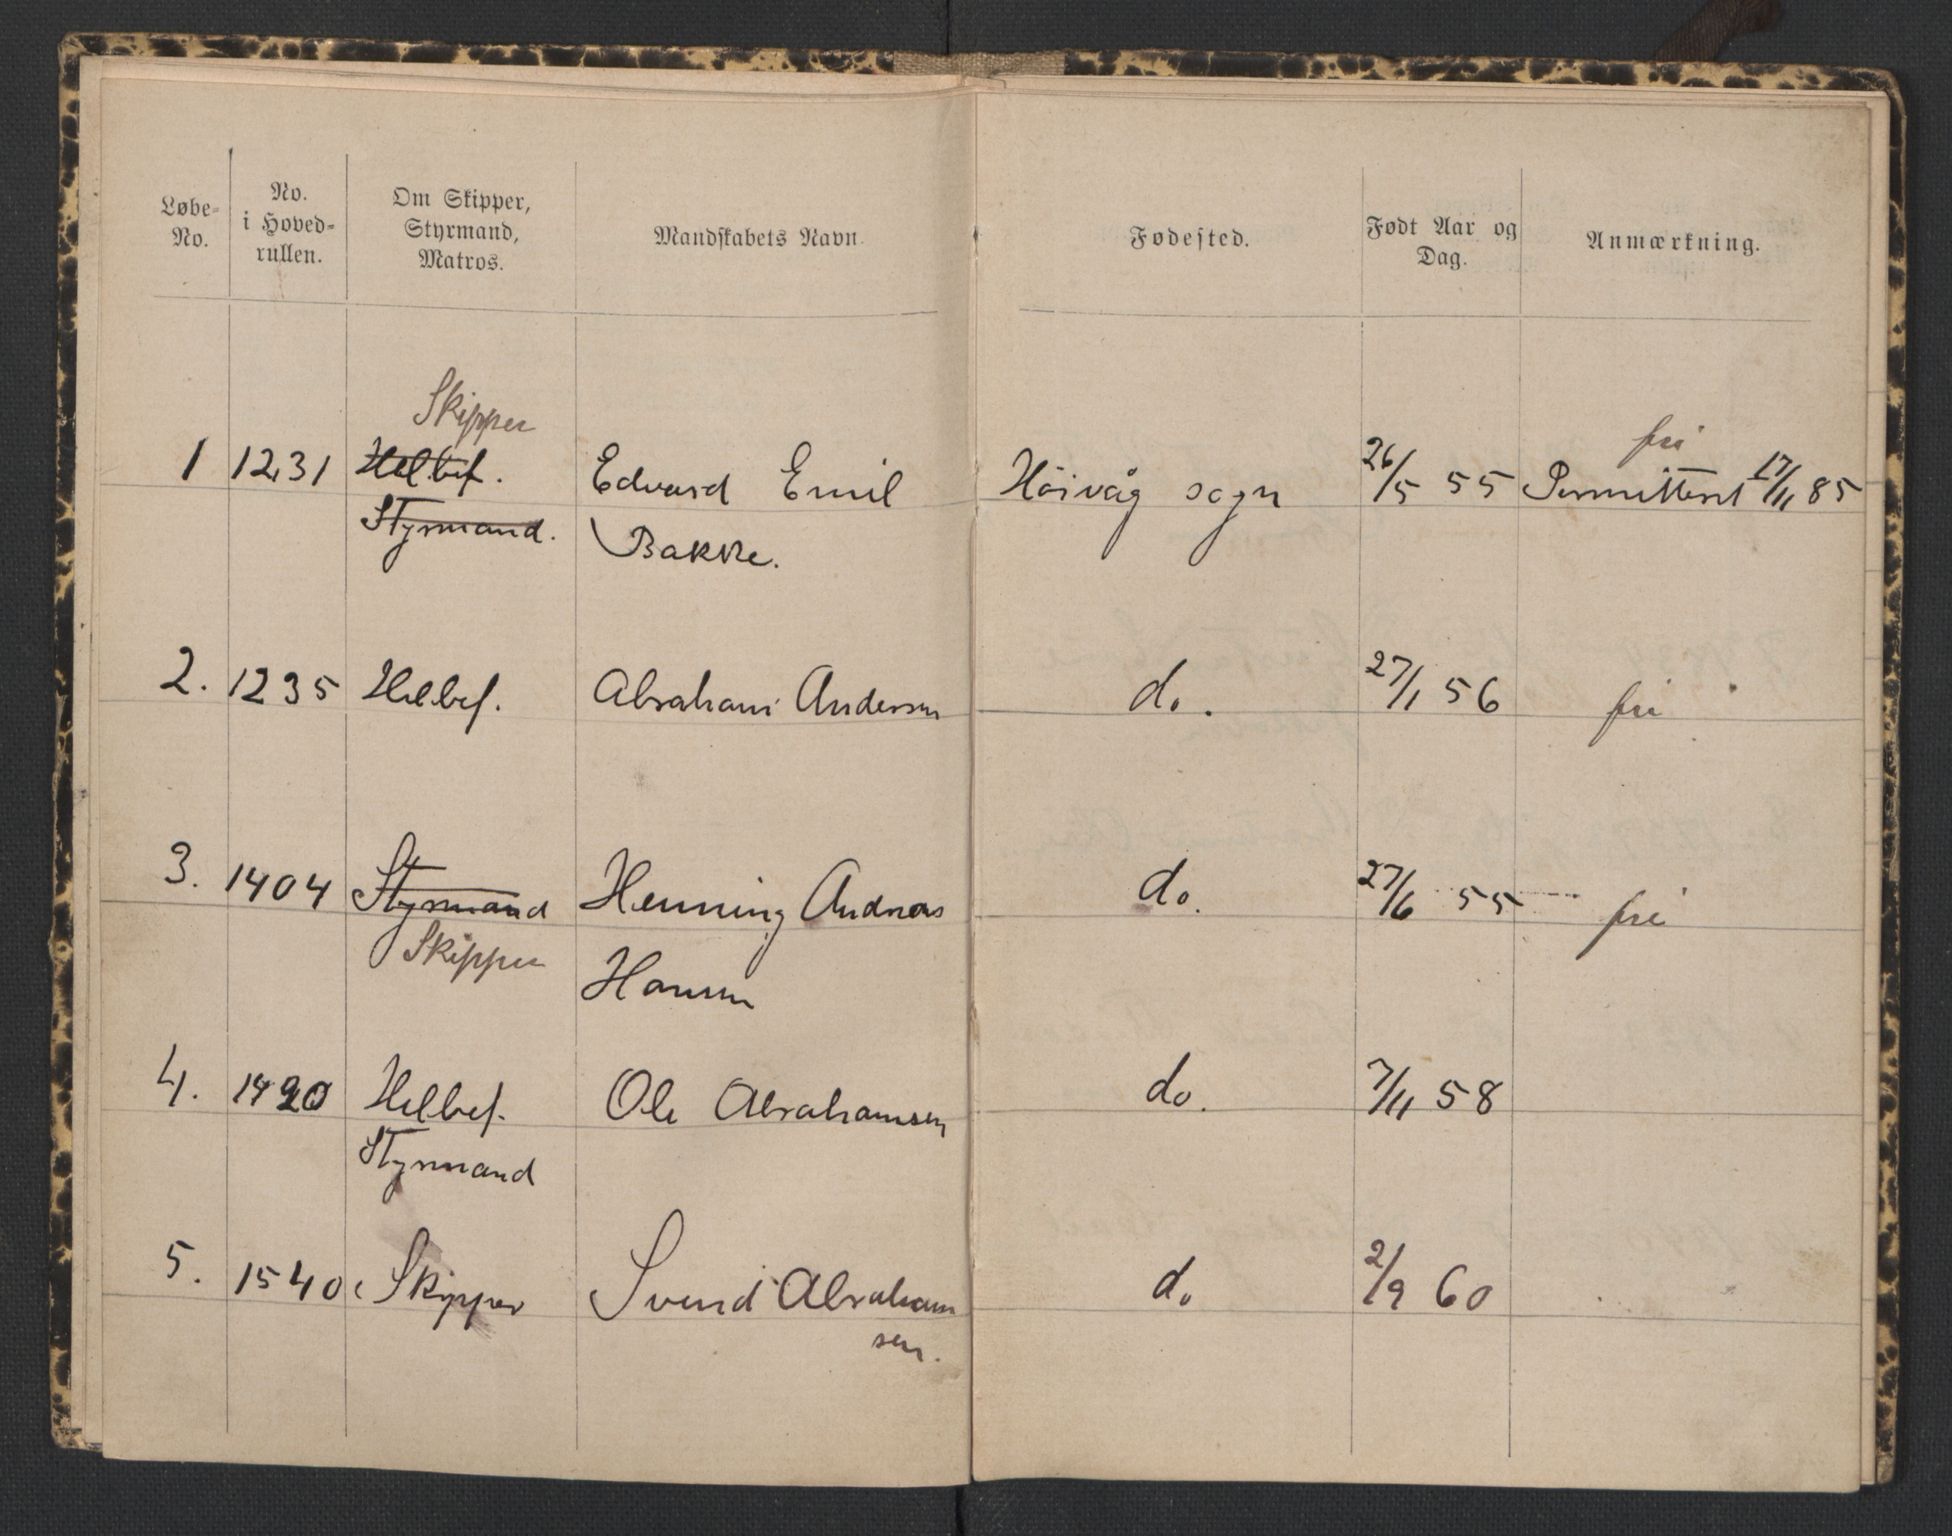 Løbe-
No.
No.
i Hoved-
rullen.
Om Skipper,
Styrmand,
Matros.
Mandskabets Navn.
Fødested.
Født Aar og
Dag.
Anmærkning.
Skipper fri
1 1231 Helbef. Edvard Emil Höivåg sogn 26/5 55 Permitteret 17/11 85
Styrmand. Bakke.
2. 1235 Helbef. Abraham Andersen do. 27/1 56 fri
3. 1404 Styrmand Henning Andreas do. 27/6 55 fri
Skipper Hansen
4. 1420 Helbef. Ole Abrahamsen do. 7/11 58
Styrmand
5. 1540 Skipper Svend Abraham do 2/9 60
sen.